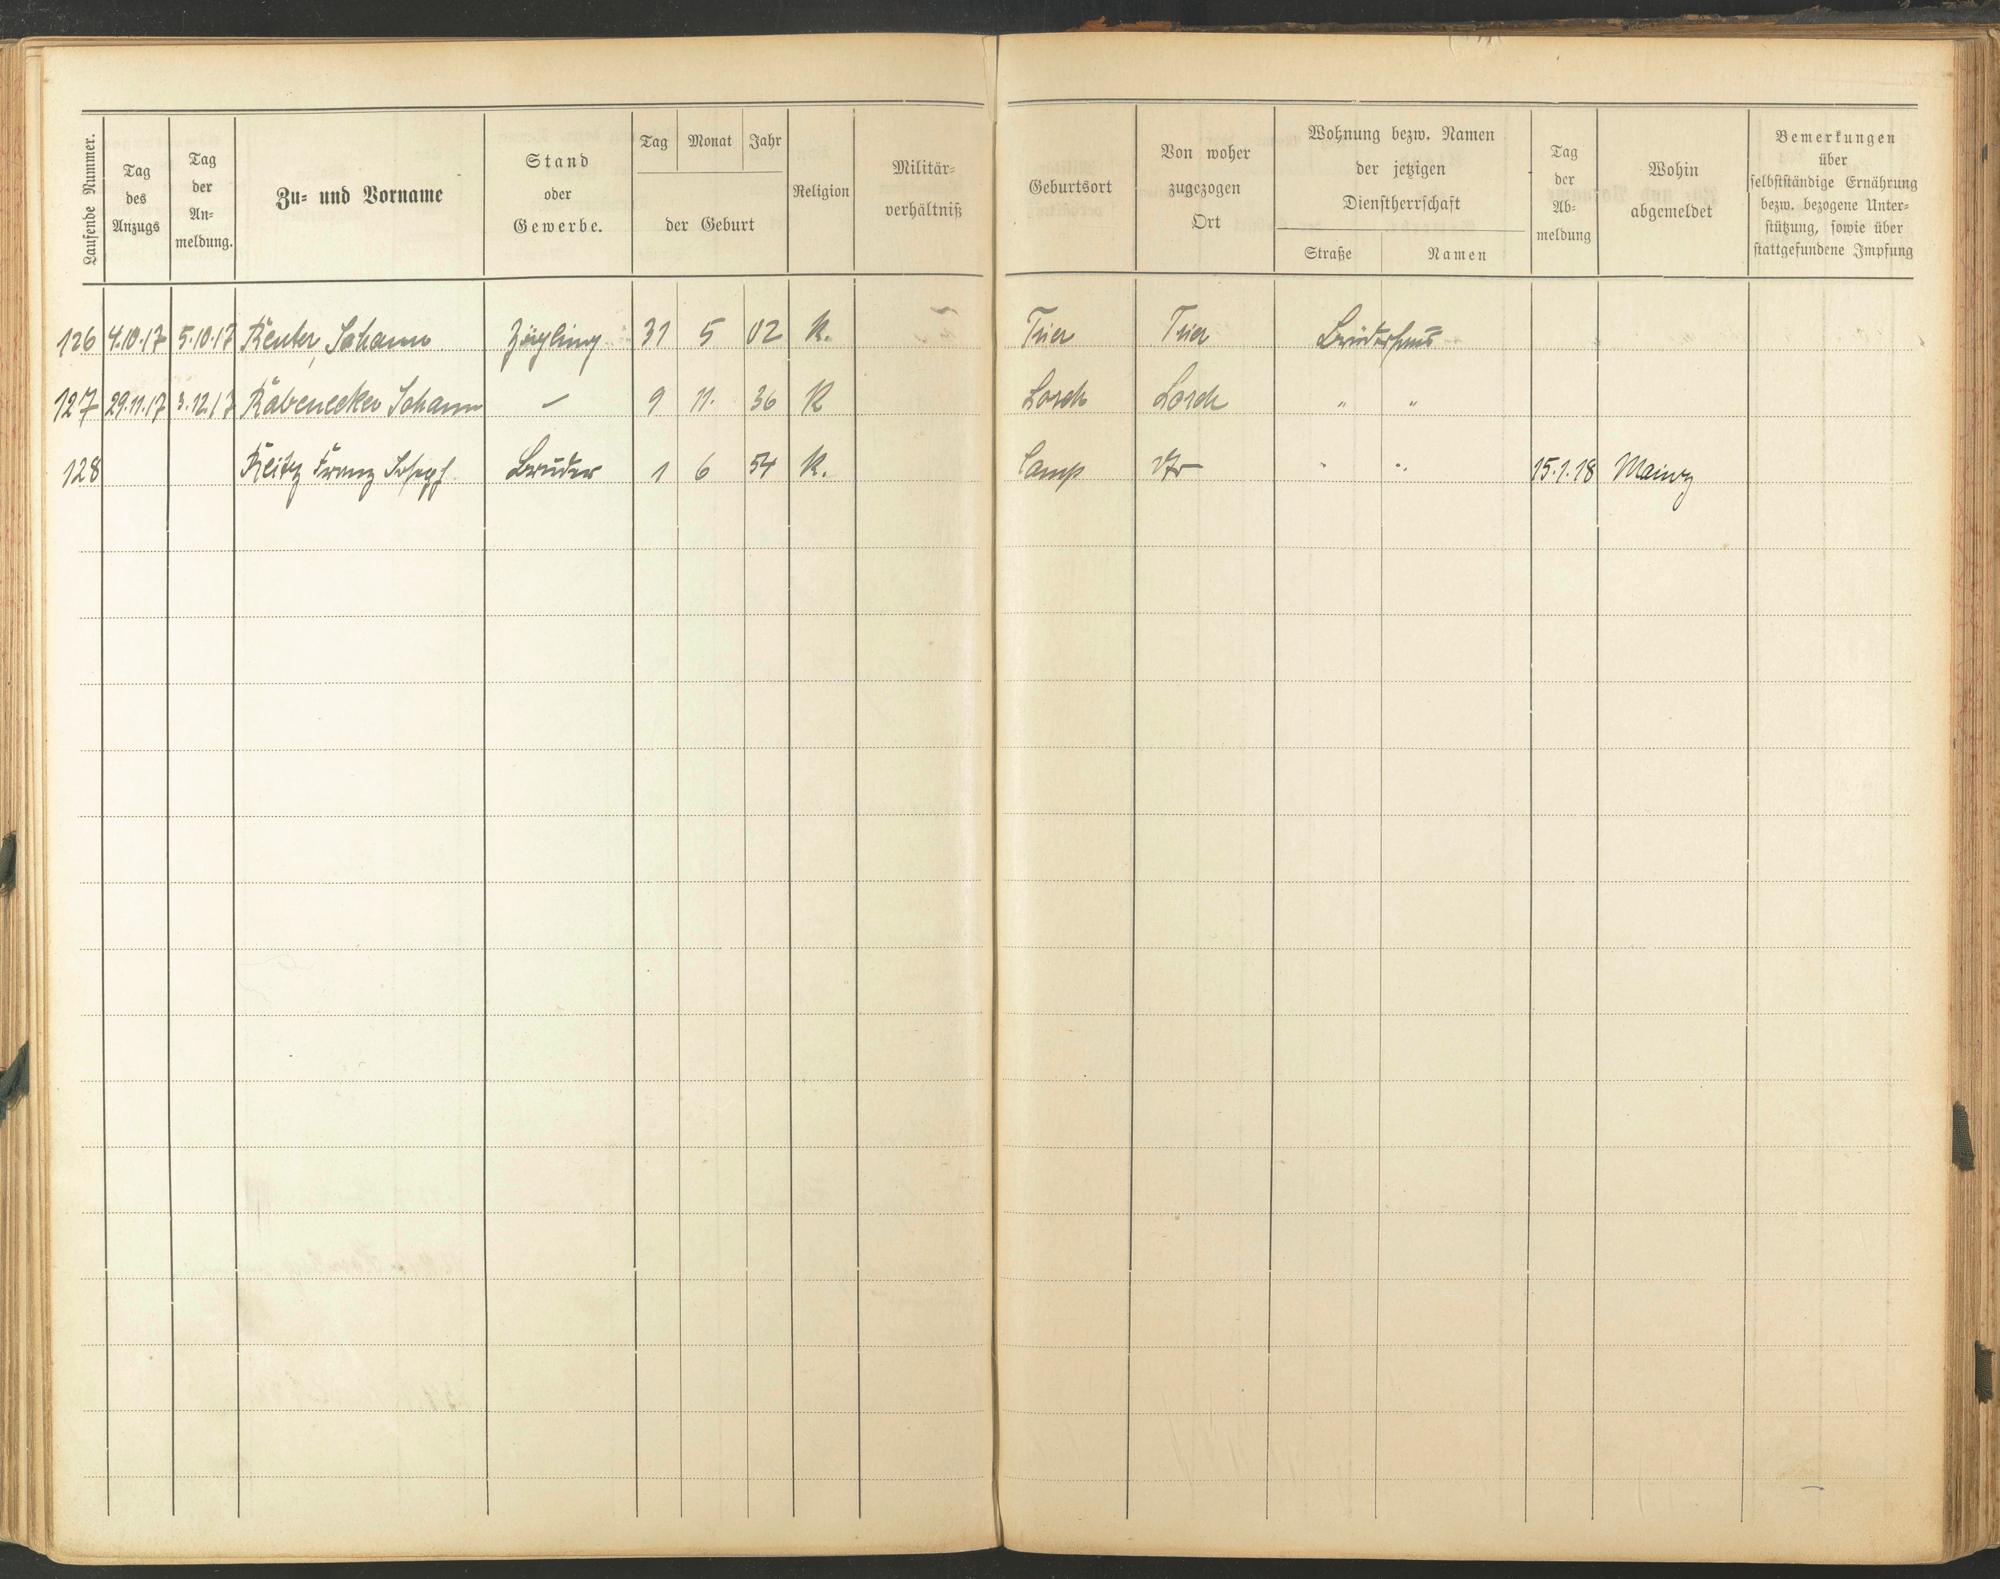 Laufende Nummer.
Tag des Anzugs
Tag der An-meldung.
Zu- und Vorname
Stand oder Gewerbe.
Tag Monat Jahr
der Geburt
Religion
Militär-verhältniß
Geburtsort
Von woher zugezogen Ort
Wohnung bezw. Namen der jetzigen Dienstherrschaft
Straße Namen
Tag der Ab-meldung
Wohin abgemeldet
Bemerkungen über selbstständige Ernährung bezw. bezogene Unter-stützung, sowie über stattgefundene Impfung
126 4.10.17 5.10.17 Reuter, Johann Zögling 31 5 02 K. Trier Trier Brüderhaus
127 29.11.17 3.12.17 Rabenecker Johann — 9 11. 36 K Lorch Lorch " "
128 Reitz Franz Joseph Bruder 1 6 54 K. Camp " " 15.1.18 Mainz